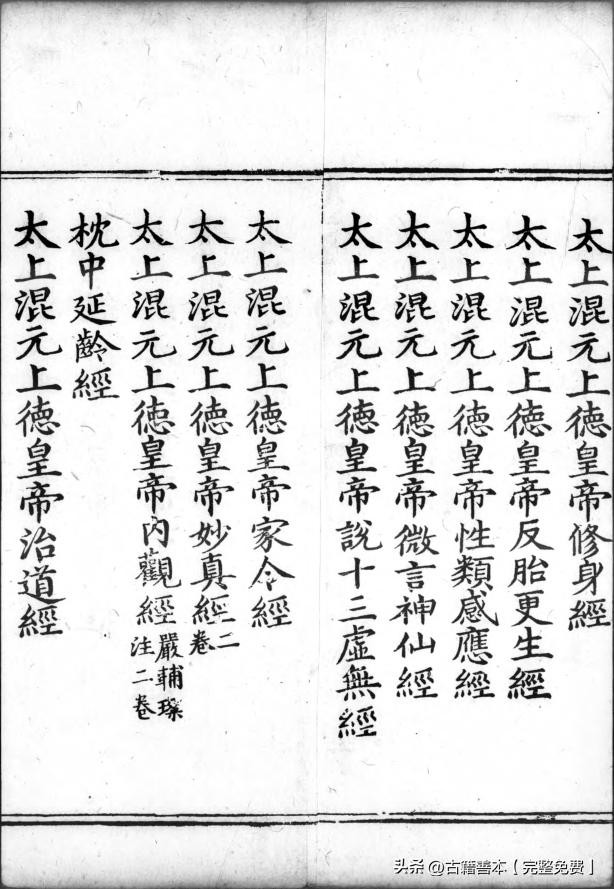 太上混元上德皇帝修身經
太上混元上德皇帝反胎更生經
太上混元上德皇帝性類感應經
太上混元上德皇帝微言神仙經
太上混元上德皇帝說十三虛無經
太上混元上德皇帝家令經
太上混元上德皇帝妙真經二卷
太上混元上德皇帝內觀經嚴輔璨注二卷
枕中延齡經
太上混元上德皇帝治道經
头条 @古籍善本【完整免费】